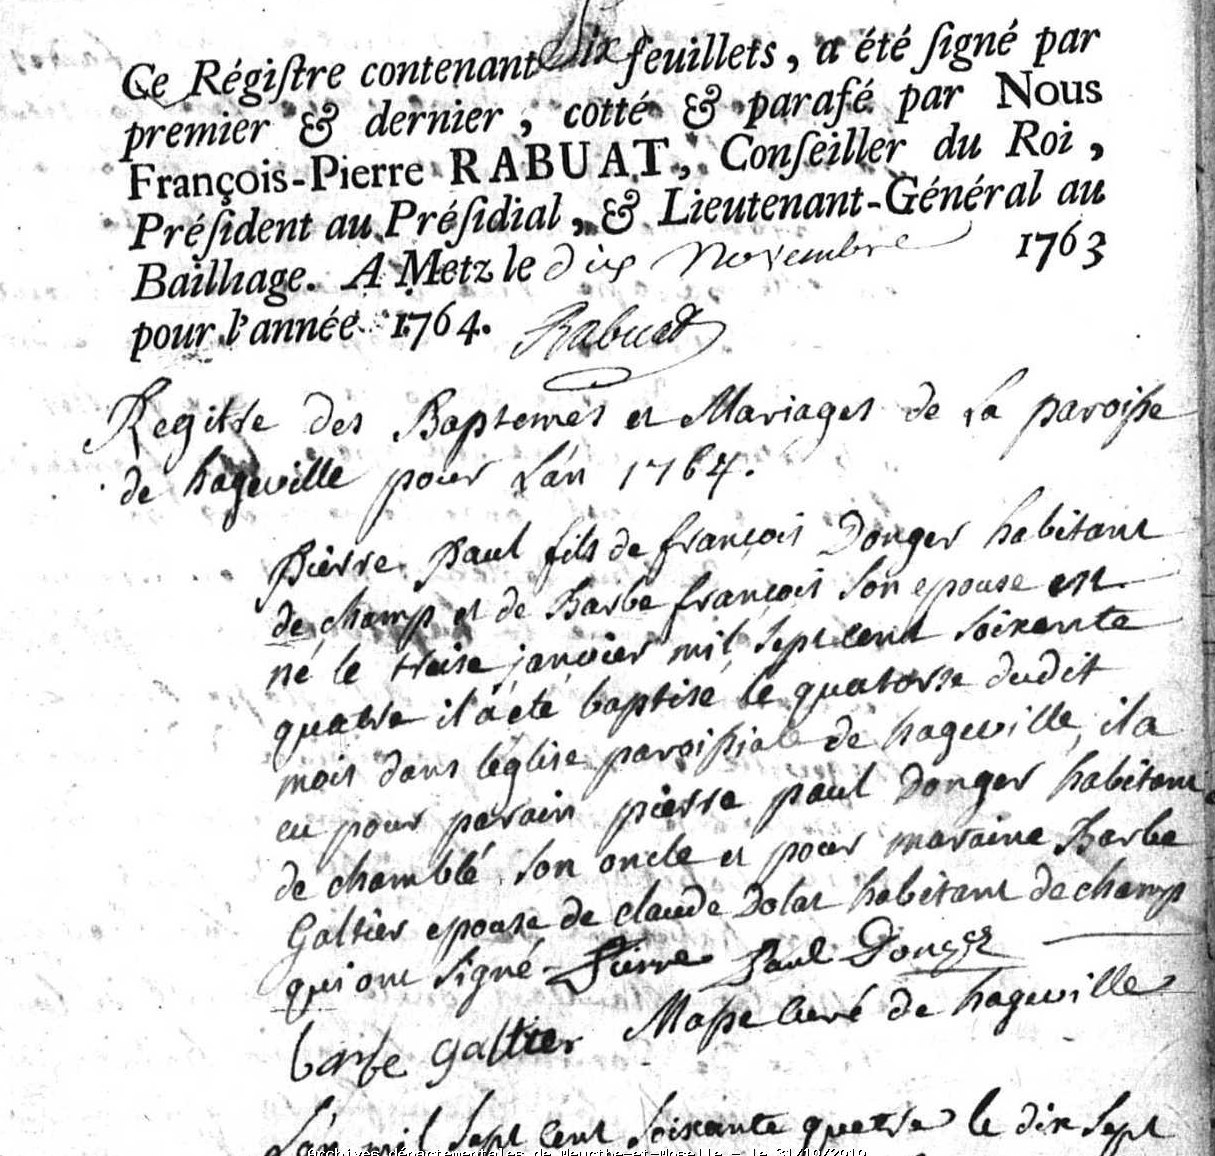 Ce Régiſtre contenant Six feuillets, a été ſigné par
premier & dernier, cotté & parafé par Nous
François-Pierre RABUAT, Conſeiller du Roi,
Préſident au Préſidial, & Lieutenant-Général au
Bailliage. A Metz le dix novembre 1763
pour l'année 1764. Rabuat
Regitre des Baptemes et Mariages de La paroisse
de hageville pour L'an 1764.
pierre paul fils de françois Donger habitant
de champ et de Barbe françois son epouse est
né le treise janvier mil sept cent soixante
quatre il a été baptisé le quatorse dudit
mois dans l'église paroissiale de hageville, il a
eu pour parain pierre paul Donger habitant
de chamblé son oncle et pour maraine Barbe
Galtier epouse de claude Dolat habitant de champ
qui ont signé Pierre Paul Donger
barbe galtier Masse curé de hageville
L'an mil sept cent soixante quatre le dix sept
Archives départementales de Meurthe-et-Moselle - le 31/10/2019